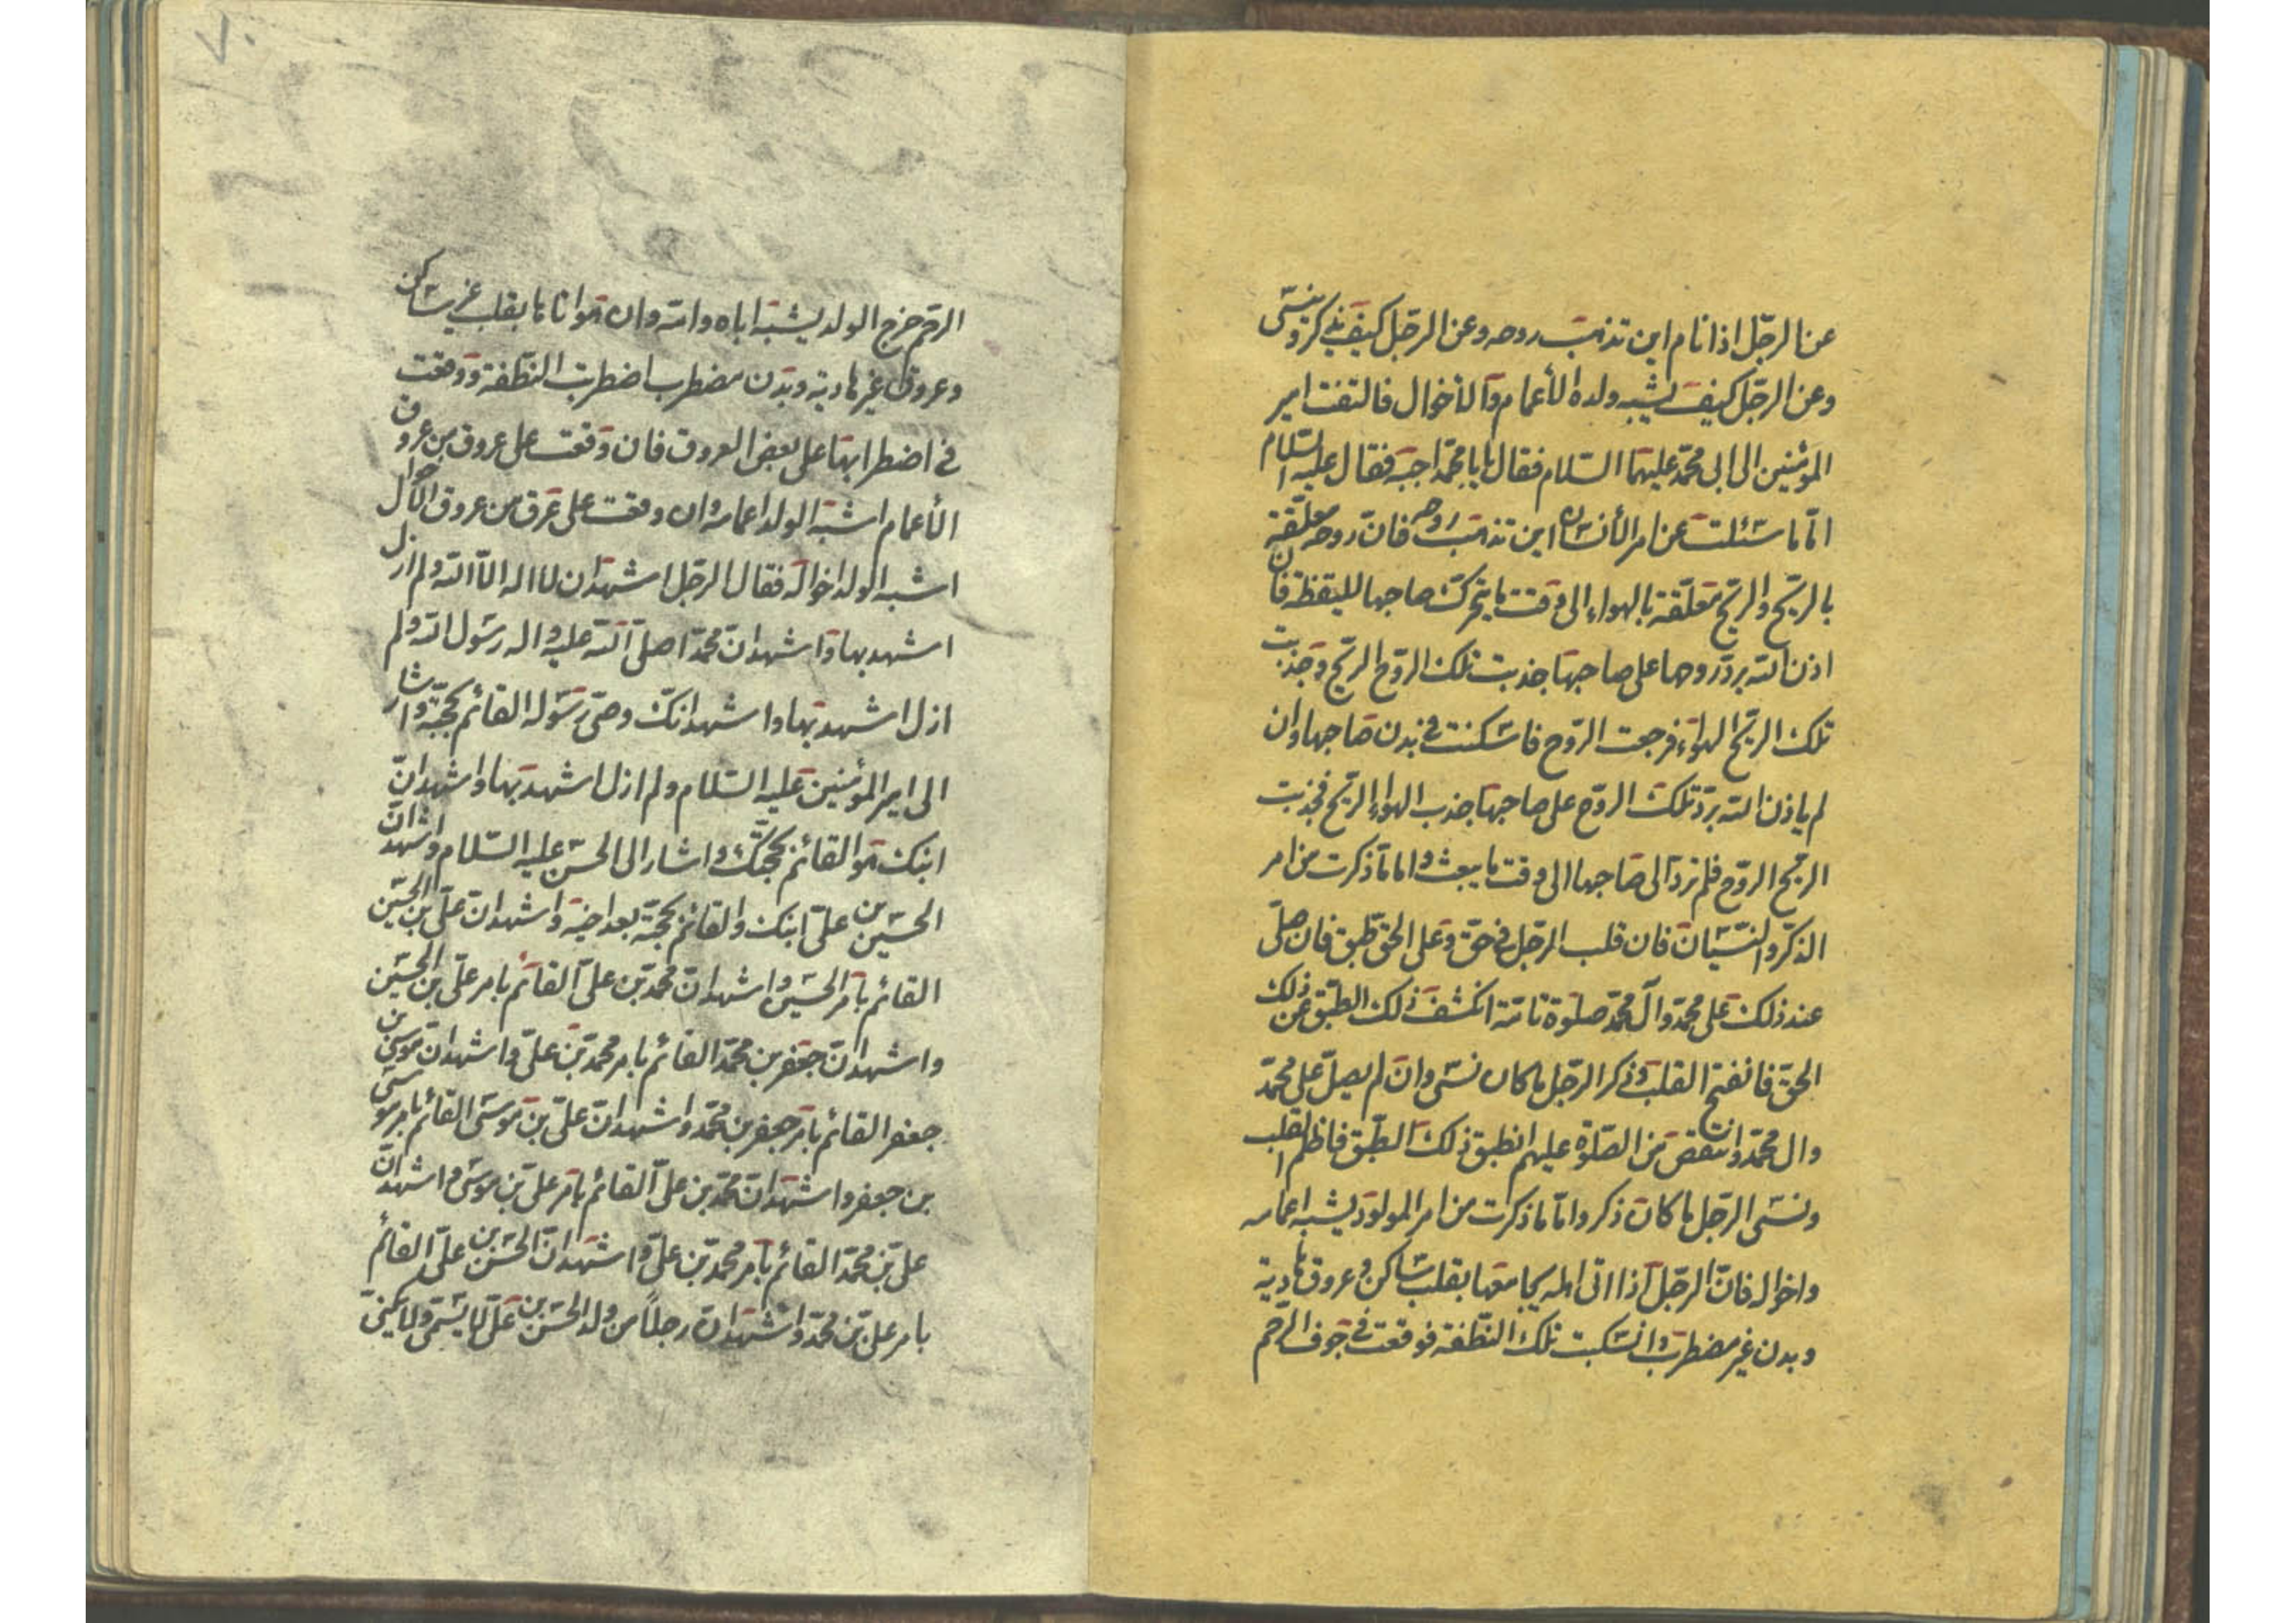 عن الرجل اذا نام این تذهب روحه وعن الرجل کیف یذکر وینسی
وعن الرجل کیف یشبه ولده الأعمام والأخوال فالتفت امیر
المؤمنین الی ابی محمد علیهما السلام فقال یابا محمد اجبه فقال علیه السلام
امّا ما سئلت عن امر الأنسان این تذهب روحه فانّ روحه معلّقة
بالریح والریح معلّقة بالهواء الی وقت ما یتحرک صاحبها للیقظة فان
اذن الله بردّ روحها علی صاحبها جذبت تلک الروح الریح وجذبت
تلک الریح الهواء فرجعت الروح فاسکنت فی بدن صاحبها وان
لم یاذن الله بردّ تلک الروح علی صاحبها جذب الهواء الریح فجذبت
الریح الروح فلم ترد الی صاحبها الی وقت ما یبعث واما ما ذکرت من امر
الذکر والنسیان فان قلب الرجل فی حق وعلی الحق طبق فان صلّی
عند ذلک علی محمد وآل محمد صلوة تامّة انکشف ذلک الطبق عن ذلک
الحق فانفتح القلب وذکر الرجل ما کان نسی وان لم یصلّ علی محمد
وال محمد وانتقص من الصلوة علیهم انطبق ذلک الطبق فاظلم القلب
ونسی الرجل ما کان ذکر وامّا ما ذکرت من امر المولود یشبه اعمامه
واخواله فانّ الرجل اذا اتی اهله یجامعها بقلب ساکن وعروق هادیة
وبدن غیر مضطرب وانسکبت تلک النطفة فوقعت فی جوف الرحم
۷۰
الرحم خرج الولد یشبه اباه وامّه وان هو اتاها بقلب غیر ساکن
وعروق غیر هادیة وبدن مضطرب اضطربت النطفة ووقعت
فی اضطرابها علی بعض العروق فان وقعت علی عروق من عروق
الأعمام اشبه الولد اعمامه وان وقعت علی عرق من عروق الأخوال
اشبه الولد اخواله فقال الرجل اشهد ان لا اله الّا الله ولم ازل
اشهد بها واشهد انّ محمدا صلی الله علیه واله رسول الله ولم
ازل اشهد بها واشهد انّک وصیّ رسوله القائم بحجّته واشار
الی امیر المؤمنین علیه السلام ولم ازل اشهد بها واشهد انّ
ابنک هو القائم بحجتک واشار الی الحسن علیه السلام واشهد انّ
الحسین بن علیّ ابنک والقائم بحجّته بعد اخیه واشهد انّ علیّ بن الحسین
القائم بامر الحسین واشهد انّ محمد بن علیّ القائم بامر علیّ بن الحسین
واشهد انّ جعفر بن محمد القائم بامر محمد بن علیّ واشهد انّ موسی بن
جعفر القائم بامر جعفر بن محمد واشهد انّ علیّ بن موسی القائم بامر موسی
بن جعفر واشهد انّ محمد بن علیّ القائم بامر علیّ بن موسی واشهد انّ
علیّ بن محمد القائم بامر محمد بن علیّ واشهد انّ الحسن بن علیّ القائم
بامر علیّ بن محمد واشهد انّ رجلاً من ولد الحسن بن علیّ لا یسمّی ولا یکنیّ